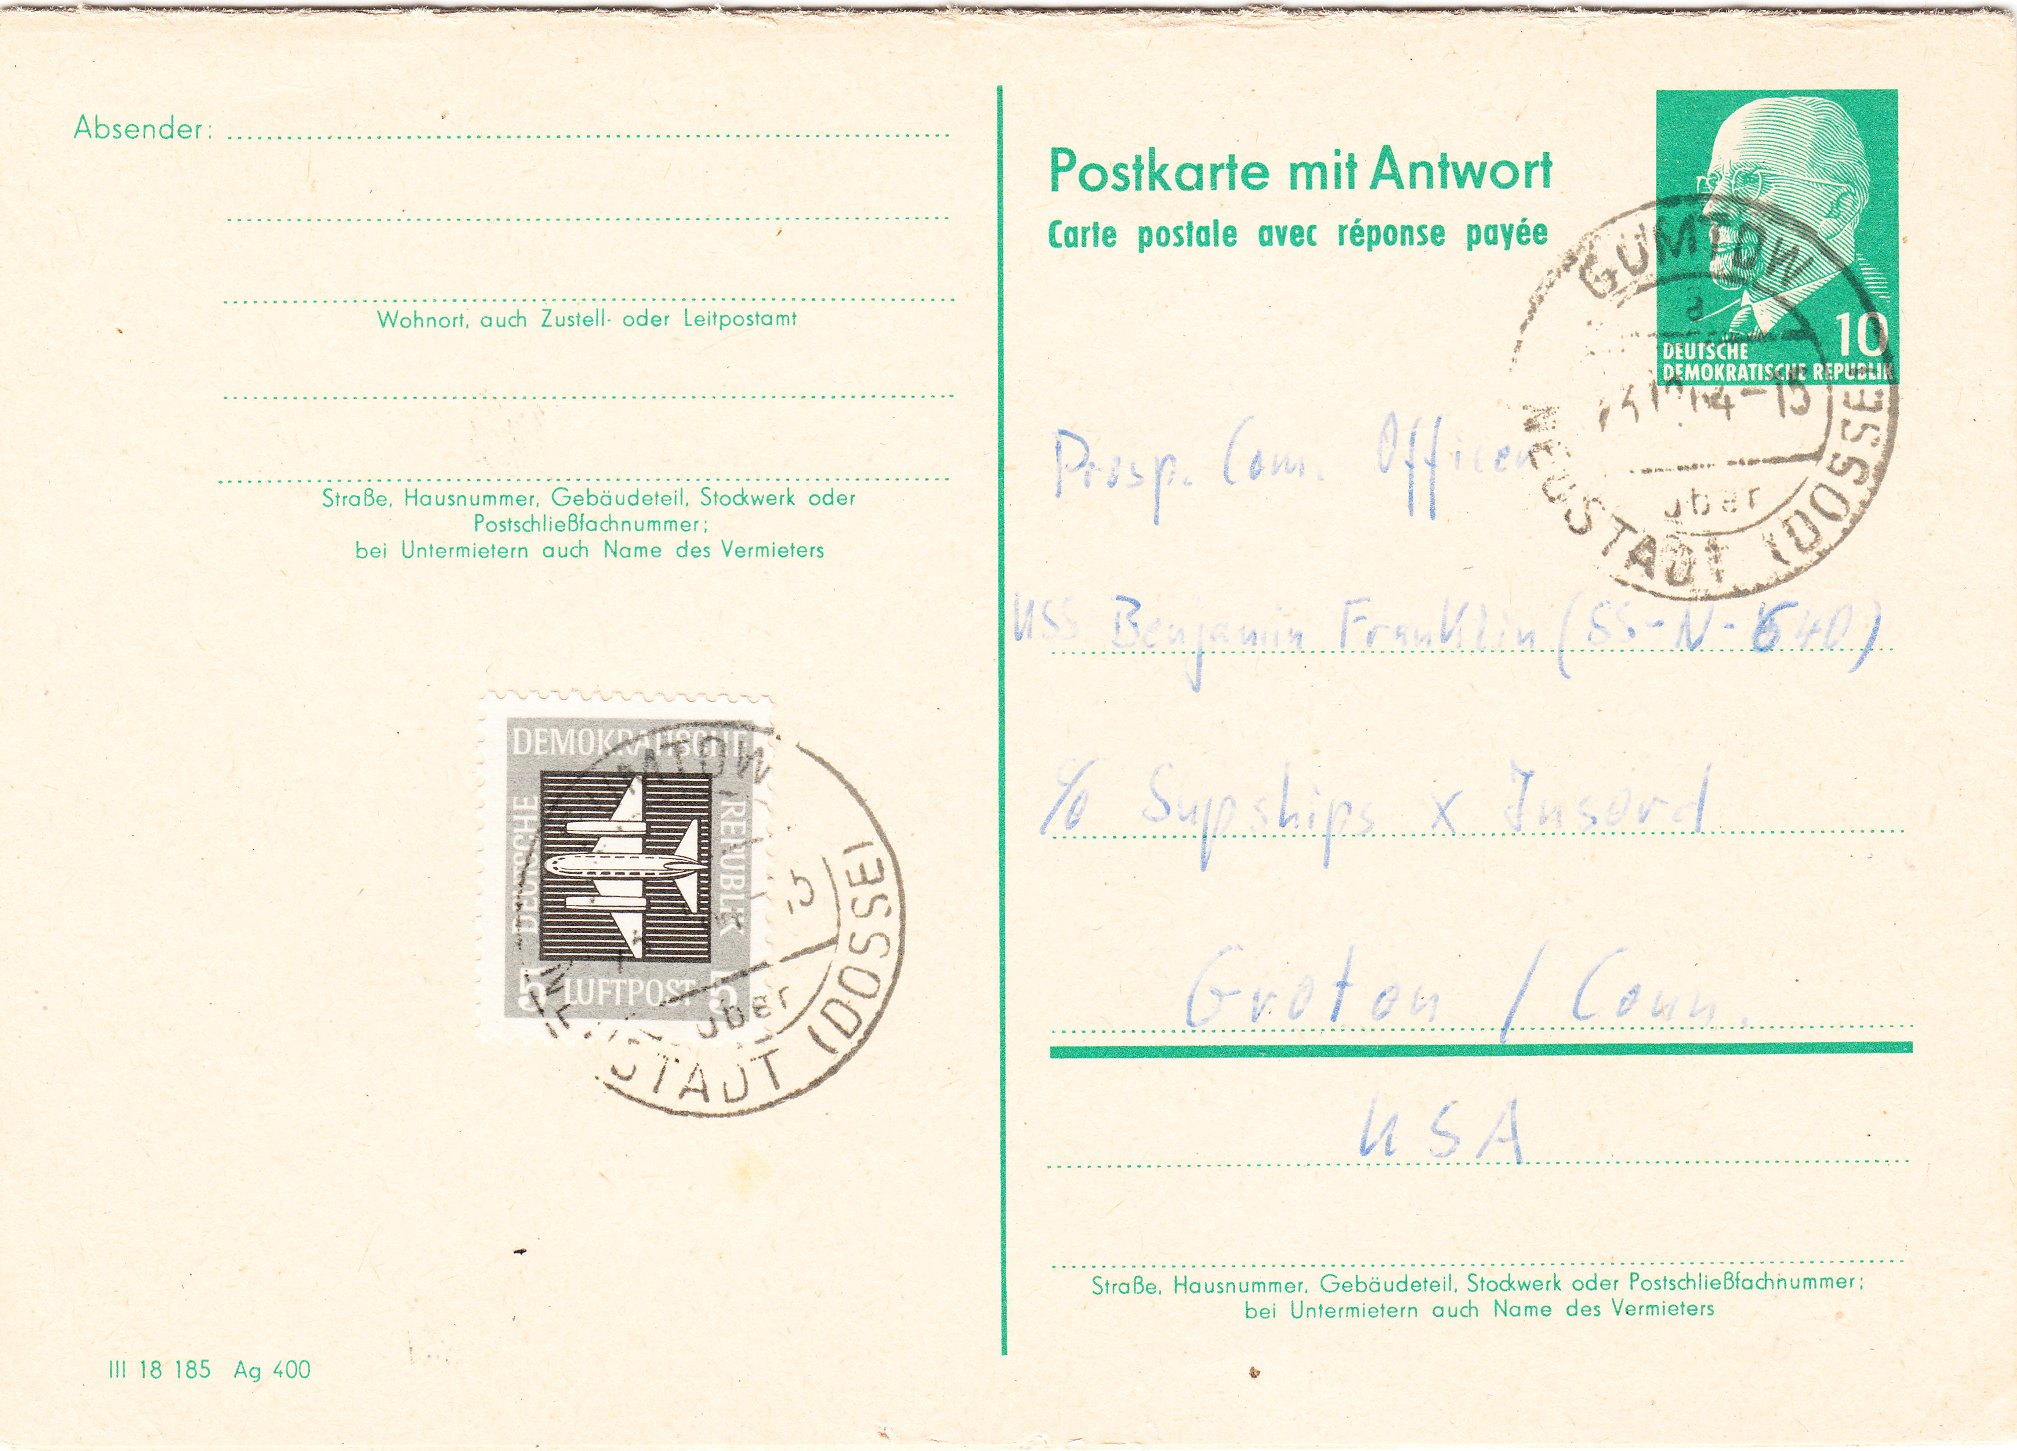 Absender:
Wohnort, auch Zustell- oder Leitpostamt
Straße, Hausnummer, Gebäudeteil, Stockwerk oder
Postschließfachnummer;
bei Untermietern auch Name des Vermieters
DEMOKRATISCHE
DEUTSCHE
REPUBLIK
5 LUFTPOST 5
MTOW
über
STADT (DOSSE)
III 18 185 Ag 400
Postkarte mit Antwort
Carte postale avec réponse payée
10
DEUTSCHE
DEMOKRATISCHE REPUBLIK
GUMTOW
a
über
NEUSTADT (DOSSE)
Prosp. Com. Officer
USS Benjamin Franklin (SS-N-640)
c/o Supships x Insord
Groton / Conn.
USA
Straße, Hausnummer, Gebäudeteil, Stockwerk oder Postschließfachnummer;
bei Untermietern auch Name des Vermieters